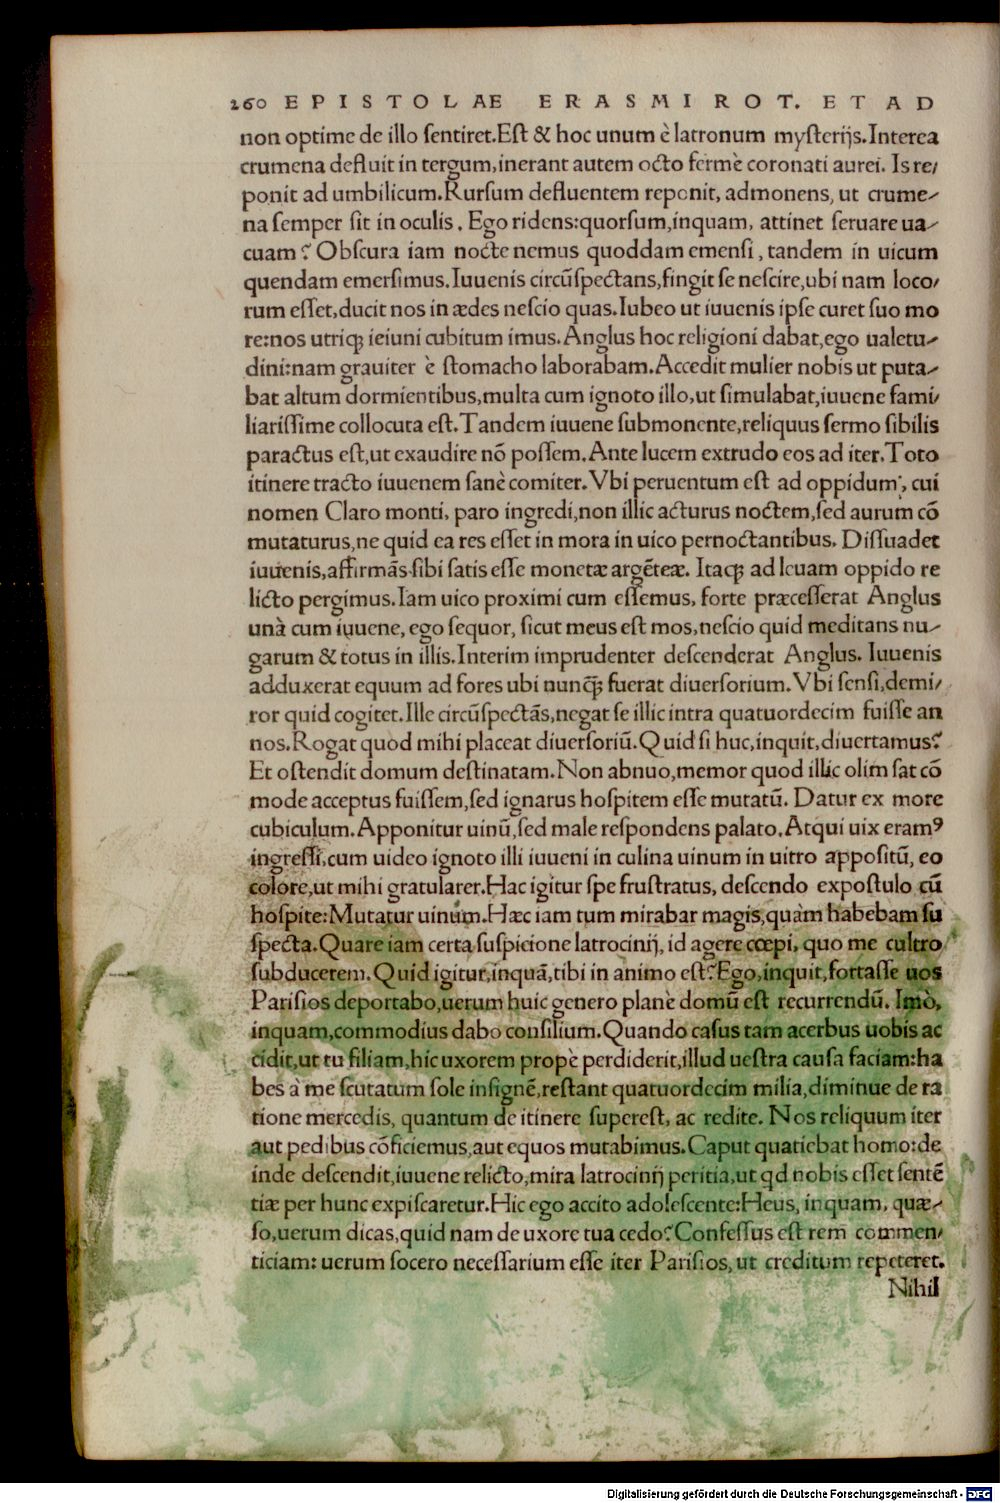 260 EPISTOLAE ERASMI ROT. ET AD
non optime de illo ſentiret.Eſt & hoc unum è latronum myſterijs.Interea
crumena defluit in tergum,inerant autem octo fermè coronati aurei. Is re/
ponit ad umbilicum.Rurſum defluentem reponit, admonens, ut crume-
na ſemper ſit in oculis. Ego ridens:quorſum,inquam, attinet ſeruare ua-
cuam? Obſcura iam nocte nemus quoddam emenſi, tandem in uicum
quendam emerſimus.Iuuenis circūſpectans,fingit ſe neſcire,ubi nam loco/
rum eſſet,ducit nos in ædes neſcio quas.Iubeo ut iuuenis ipſe curet ſuo mo
re:nos utriqꝫ ieiuni cubitum imus.Anglus hoc religioni dabat,ego ualetu-
dini:nam grauiter è ſtomacho laborabam.Accedit mulier nobis ut puta-
bat altum dormientibus,multa cum ignoto illo,ut ſimulabat,iuuene fami/
liariſſime collocuta eſt.Tandem iuuene ſubmonente,reliquus ſermo ſibilis
paractus eſt,ut exaudire nō poſſem.Ante lucem extrudo eos ad iter.Toto
itinere tracto iuuenem ſanè comiter.Vbi peruentum eſt ad oppidum, cui
nomen Claro monti, paro ingredi,non illic acturus noctem,ſed aurum cō
mutaturus,ne quid ea res eſſet in mora in uico pernoctantibus. Diſſuadet
iuuenis,affirmās ſibi ſatis eſſe monetæ argēteæ. Itaqꝫ ad leuam oppido re
licto pergimus.Iam uico proximi cum eſſemus, forte præceſſerat Anglus
unà cum iuuene, ego ſequor, ſicut meus eſt mos,neſcio quid meditans nu-
garum & totus in illis.Interim imprudenter deſcenderat Anglus. Iuuenis
adduxerat equum ad fores ubi nunqꝫ̄ fuerat diuerſorium.Vbi ſenſi,demi/
ror quid cogitet.Ille circūſpectās,negat ſe illic intra quatuordecim fuiſſe an
nos.Rogat quod mihi placeat diuerſoriū.Quid ſi huc,inquit,diuertamus?
Et oſtendit domum deſtinatam.Non abnuo,memor quod illic olim ſat cō
mode acceptus fuiſſem,ſed ignarus hoſpitem eſſe mutatū. Datur ex more
cubiculum.Apponitur uinū,ſed male reſpondens palato.Atqui uix eramꝰ
ingreſſi,cum uideo ignoto illi iuueni in culina uinum in uitro appoſitū, eo
colore,ut mihi gratularer.Hac igitur ſpe fruſtratus, deſcendo expoſtulo cū
hoſpite:Mutatur uinum.Hæc iam tum mirabar magis,quàm habebam ſu
ſpecta.Quare iam certa ſuſpicione latrocinij, id agere cœpi, quo me cultro
ſubducerem.Quid igitur,inquā,tibi in animo eſt?Ego,inquit,fortaſſe uos
Pariſios deportabo,uerum huic genero planè domū eſt recurrendū. Imò,
inquam,commodius dabo conſilium.Quando caſus tam acerbus uobis ac
cidit,ut tu filiam,hic uxorem propè perdiderit,illud ueſtra cauſa faciam:ha
bes à me ſcutatum ſole inſignē,reſtant quatuordecim milia,diminue de ra
tione mercedis, quantum de itinere ſupereſt, ac redite. Nos reliquum iter
aut pedibus cōficiemus,aut equos mutabimus.Caput quatiebat homo:de
inde deſcendit,iuuene relicto,mira latrocinij peritia,ut qd nobis eſſet ſentē
tiæ per hunc expiſcaretur.Hic ego accito adoleſcente:Heus, inquam, quæ-
ſo,uerum dicas,quid nam de uxore tua cedo?Confeſſus eſt rem commen/
ticiam: uerum ſocero neceſſarium eſſe iter Pariſios, ut creditum repeteret.
Nihil
Digitalisierung gefördert durch die Deutsche Forschungsgemeinschaft - DFG